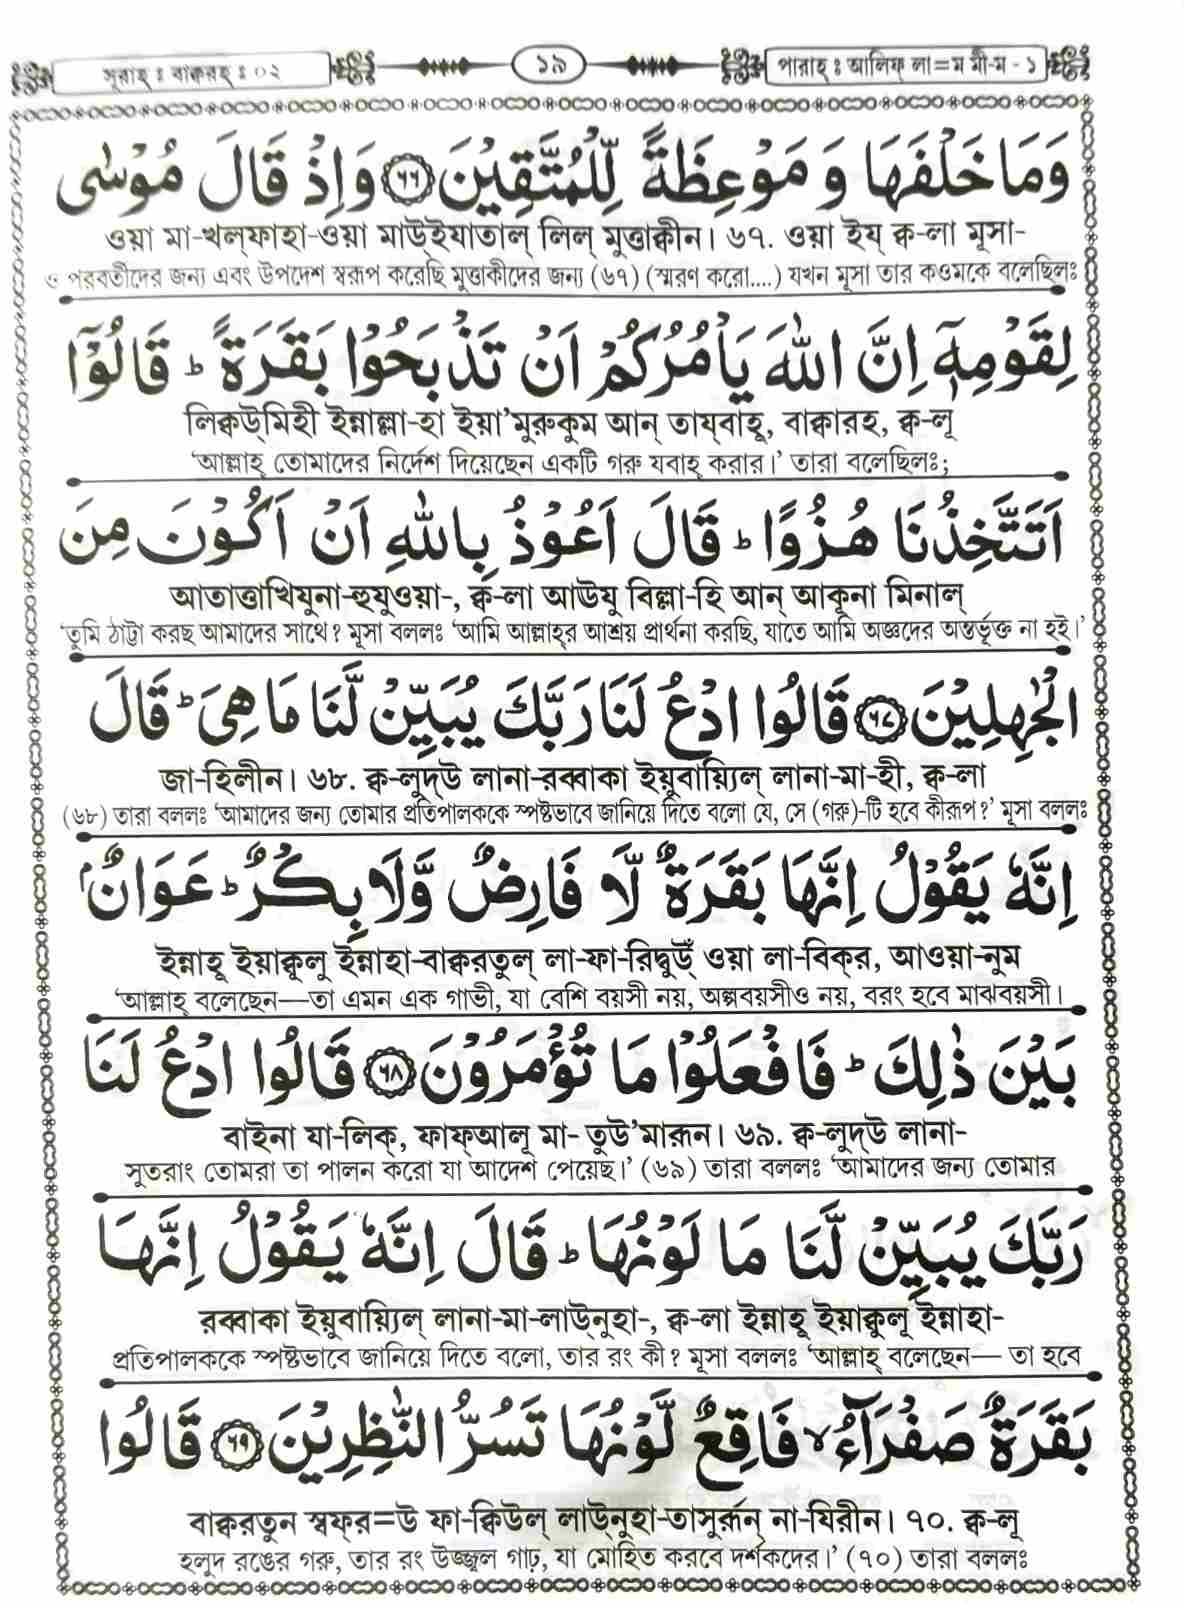 সূরাহ্ ঃ বাক্বরহ্ ঃ ০২ ১৯ পারাহ্ ঃ আলিফ্ লা=ম মী-ম - ১
وَمَا خَلْفَهَا وَ مَوْعِظَةً لِّلْمُتَّقِيْنَ ﴿٦٦﴾ وَاِذْ قَالَ مُوْسٰى
ওয়া মা-খল্‌ফাহা-ওয়া মাউ্‌ইযাতাল্ লিল্ মুত্তাক্বীন। ৬৭. ওয়া ইয্ ক্ব-লা মূসা-
ও পরবর্তীদের জন্য এবং উপদেশ স্বরূপ করেছি মুত্তাকীদের জন্য (৬৭) (স্মরণ করো....) যখন মূসা তার কওমকে বলেছিলঃ
لِقَوْمِهٖٓ اِنَّ اللّٰهَ يَاْمُرُكُمْ اَنْ تَذْبَحُوْا بَقَرَةً ؕ قَالُوْٓا
লিক্বউ্‌মিহী ইন্নাল্লা-হা ইয়া’মুরুকুম আন্ তায্‌বাহূ, বাক্বারহ, ক্ব-লূ
‘আল্লাহ্ তোমাদের নির্দেশ দিয়েছেন একটি গরু যবাহ্ করার।’ তারা বলেছিলঃ;
اَتَتَّخِذُنَا هُزُوًا ؕ قَالَ اَعُوْذُ بِاللّٰهِ اَنْ اَكُوْنَ مِنَ
আতাত্তাখিযুনা-হুযুওয়া-, ক্ব-লা আঊযু বিল্লা-হি আন্ আকূনা মিনাল্
‘তুমি ঠাট্টা করছ আমাদের সাথে? মূসা বললঃ ‘আমি আল্লাহ্‌র আশ্রয় প্রার্থনা করছি, যাতে আমি অজ্ঞদের অন্তর্ভূক্ত না হই।’
الْجٰهِلِيْنَ ﴿٦٧﴾ قَالُوا ادْعُ لَنَا رَبَّكَ يُبَيِّنْ لَّنَا مَا هِىَ ؕ قَالَ
জা-হিলীন। ৬৮. ক্ব-লুদ্‌উ লানা-রব্বাকা ইয়ুবায়্যিল্ লানা-মা-হী, ক্ব-লা
(৬৮) তারা বললঃ ‘আমাদের জন্য তোমার প্রতিপালককে স্পষ্টভাবে জানিয়ে দিতে বলো যে, সে (গরু)-টি হবে কীরূপ?’ মূসা বললঃ
اِنَّهٗ يَقُوْلُ اِنَّهَا بَقَرَةٌ لَّا فَارِضٌ وَّلَا بِكْرٌ ؕ عَوَانٌۢ
ইন্নাহূ ইয়াক্বূলু ইন্নাহা-বাক্বরতুল্ লা-ফা-রিদ্বুউঁ ওয়া লা-বিক্‌র, আওয়া-নুম
‘আল্লাহ্ বলেছেন—তা এমন এক গাভী, যা বেশি বয়সী নয়, অল্পবয়সীও নয়, বরং হবে মাঝবয়সী।
بَيْنَ ذٰلِكَ ؕ فَافْعَلُوْا مَا تُؤْمَرُوْنَ ﴿٦٨﴾ قَالُوا ادْعُ لَنَا
বাইনা যা-লিক্, ফাফ্‌আলূ মা- তুউ’মারূন। ৬৯. ক্ব-লুদ্‌উ লানা-
সুতরাং তোমরা তা পালন করো যা আদেশ পেয়েছ।’ (৬৯) তারা বললঃ ‘আমাদের জন্য তোমার
رَبَّكَ يُبَيِّنْ لَّنَا مَا لَوْنُهَا ؕ قَالَ اِنَّهٗ يَقُوْلُ اِنَّهَا
রব্বাকা ইয়ুবায়্যিল্ লানা-মা-লাউ্‌নুহা-, ক্ব-লা ইন্নাহূ ইয়াক্বুলূ ইন্নাহা-
প্রতিপালককে স্পষ্টভাবে জানিয়ে দিতে বলো, তার রং কী? মূসা বললঃ ‘আল্লাহ্ বলেছেন— তা হবে
بَقَرَةٌ صَفْرَآءُ ۙ فَاقِعٌ لَّوْنُهَا تَسُرُّ النّٰظِرِيْنَ ﴿٦٩﴾ قَالُوا
বাক্বরতুন স্বফ্‌র=উ ফা-ক্বিউল্ লাউ্‌নুহা-তাসুর্রুন্ না-যিরীন। ৭০. ক্ব-লূ
হলুদ রঙের গরু, তার রং উজ্জ্বল গাঢ়, যা মোহিত করবে দর্শকদের।’ (৭০) তারা বললঃ